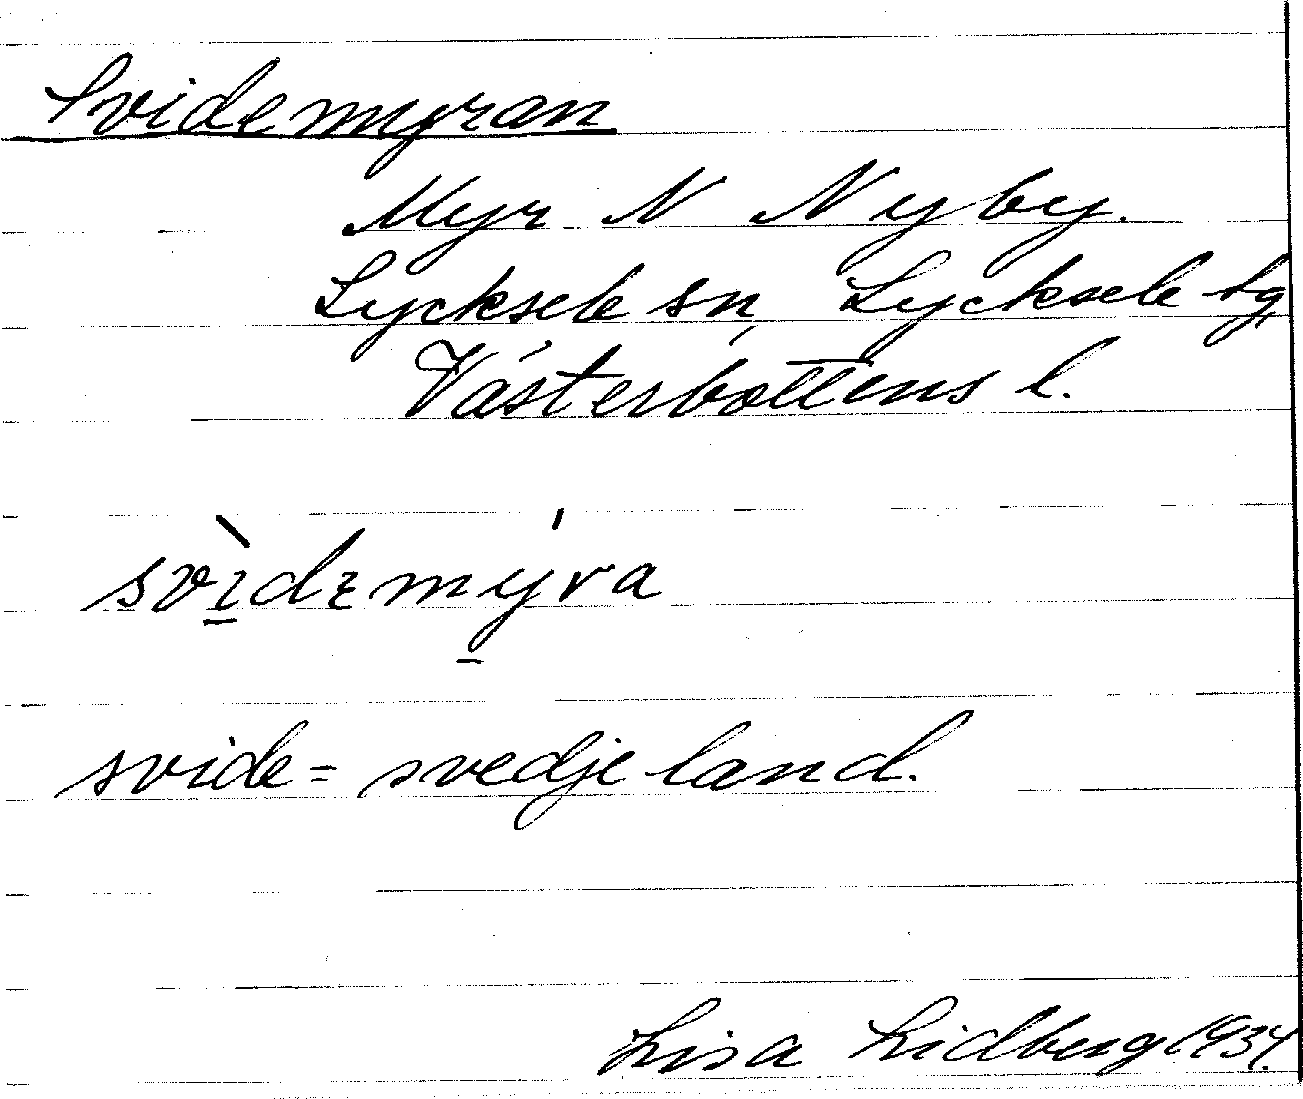 Svidemyran
Myr N Nyby.
Lycksele sn, Lycksele tg,
Västerbottens l.
svìdɛmýra
svide = svedjeland.
Lisa Lidberg 1934.